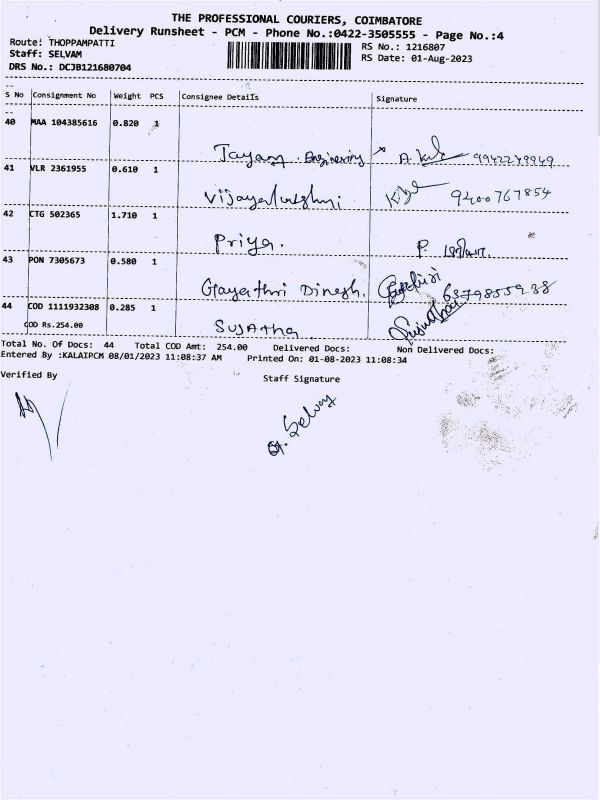 THE PROFESSIONAL COURIERS, COIMBATORE
Delivery Runsheet - PCM - Phone No.:0422-3505555 - Page No.:4
Route: THOPPAMPATTI
Staff: SELVAM
DRS No.: DCJB121680704
RS No.: 1216807
RS Date: 01-Aug-2023
S No Consignment No Weight PCS Consignee Details Signature
40 MAA 104385616 0.820 1
Jayam Engineering 9942249949
41 VLR 2361955 0.610 1
Vijayalakshmi 9400767854
42 CTG 502365 1.710 1
Priya. P.
43 PON 7305673 0.580 1
Gayathri Dinesh. 6379855938
44 COD 1111932308 0.285 1
COD Rs.254.00
Sujatha
Total No. Of Docs: 44 Total COD Amt: 254.00 Delivered Docs: Non Delivered Docs:
Entered By :KALAIPCM 08/01/2023 11:08:37 AM Printed On: 01-08-2023 11:08:34
Verified By Staff Signature
Selvay